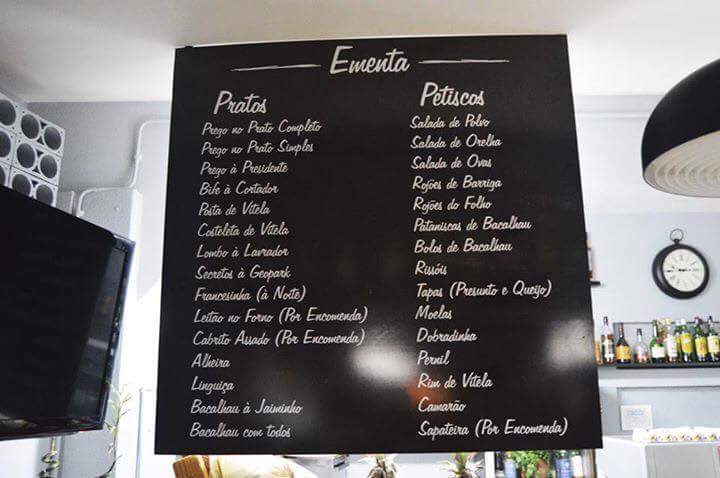 Ementa
Pratos
Prego no Prato Completo
Prego no Prato Simples
Prego à Presidente
Bife à Cortador
Posta de Vitela
Costeleta de Vitela
Lombo à Lavrador
Secretos à Geopark
Francesinha (à Noite)
Leitão no Forno (Por Encomenda)
Cabrito Assado (Por Encomenda)
Alheira
Linguiça
Bacalhau à Jaiminho
Bacalhau com todos
Petiscos
Salada de Polvo
Salada de Orelha
Salada de Ovas
Rojões de Barriga
Rojões do Folho
Pataniscas de Bacalhau
Bolos de Bacalhau
Rissóis
Tapas (Presunto e Queijo)
Moelas
Dobradinha
Pernil
Rim de Vitela
Camarão
Sapateira (Por Encomenda)